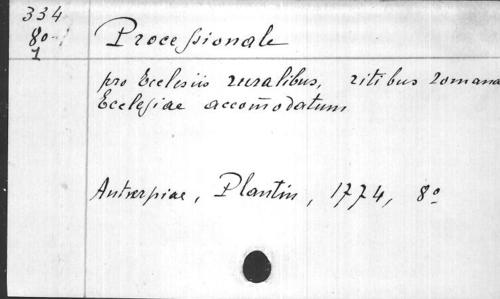 334
8o
1
Processionale
pro Ecclesiis ruralibus, ritibus romana
Ecclesiae accom̃odatum
Antverpiae, Plantin, 1774, 8o